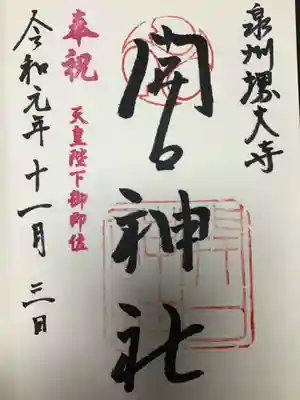 泉州堺大寺
開口神社
奉祝
天皇陛下御即位
令和元年十一月三日